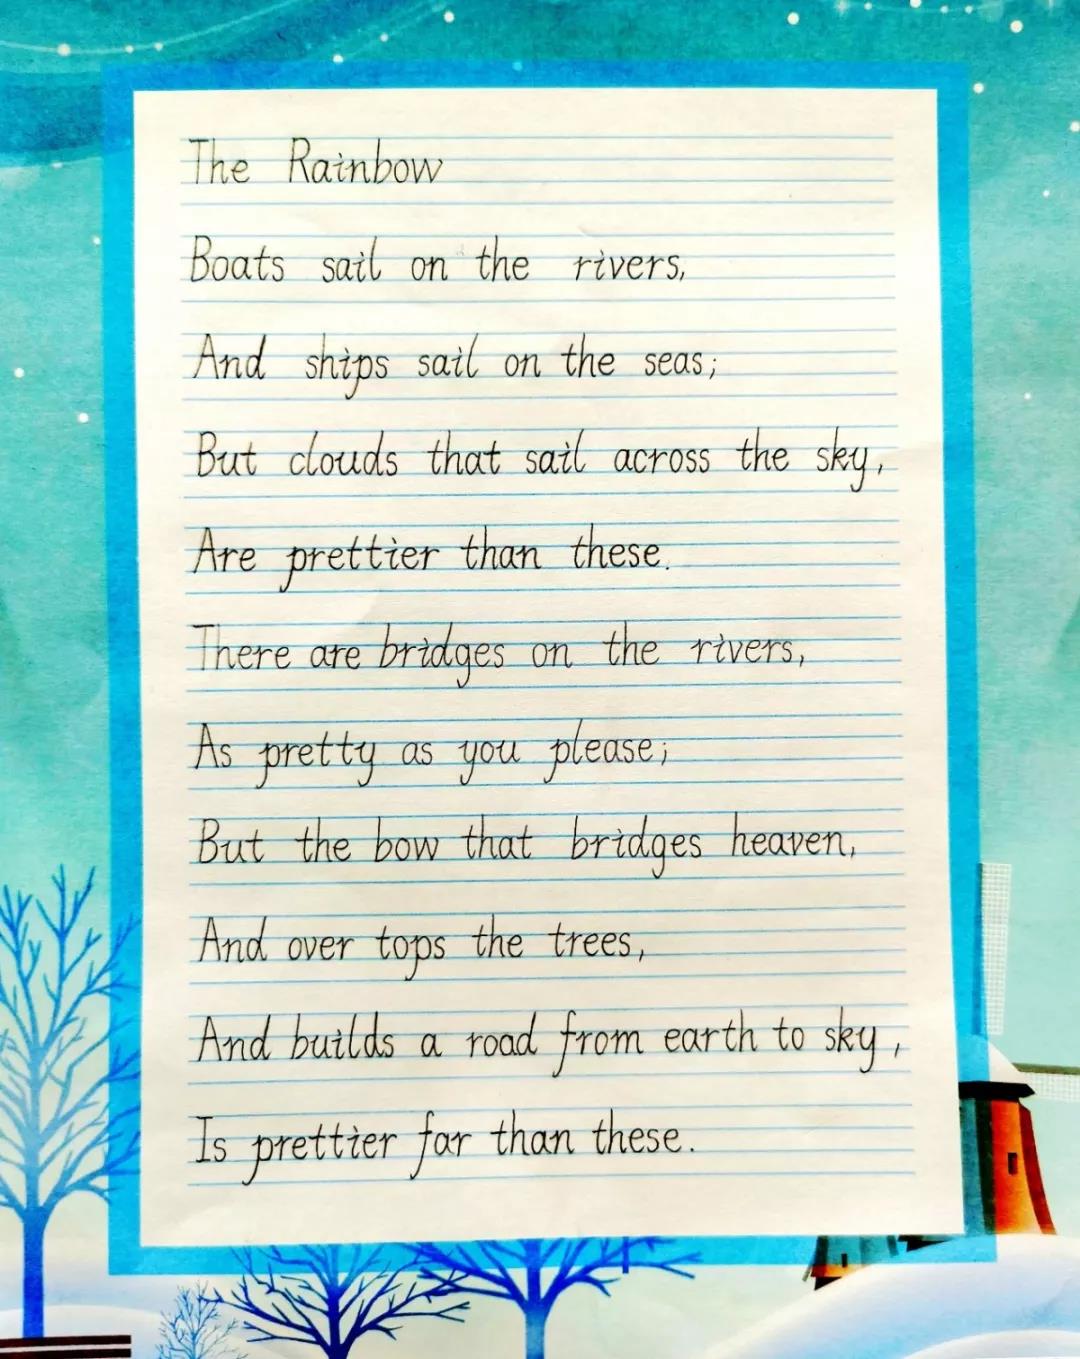 The Rainbow
Boats sail on the rivers,
And ships sail on the seas;
But clouds that sail across the sky,
Are prettier than these.
There are bridges on the rivers,
As pretty as you please;
But the bow that bridges heaven,
And over tops the trees,
And builds a road from earth to sky,
Is prettier far than these.